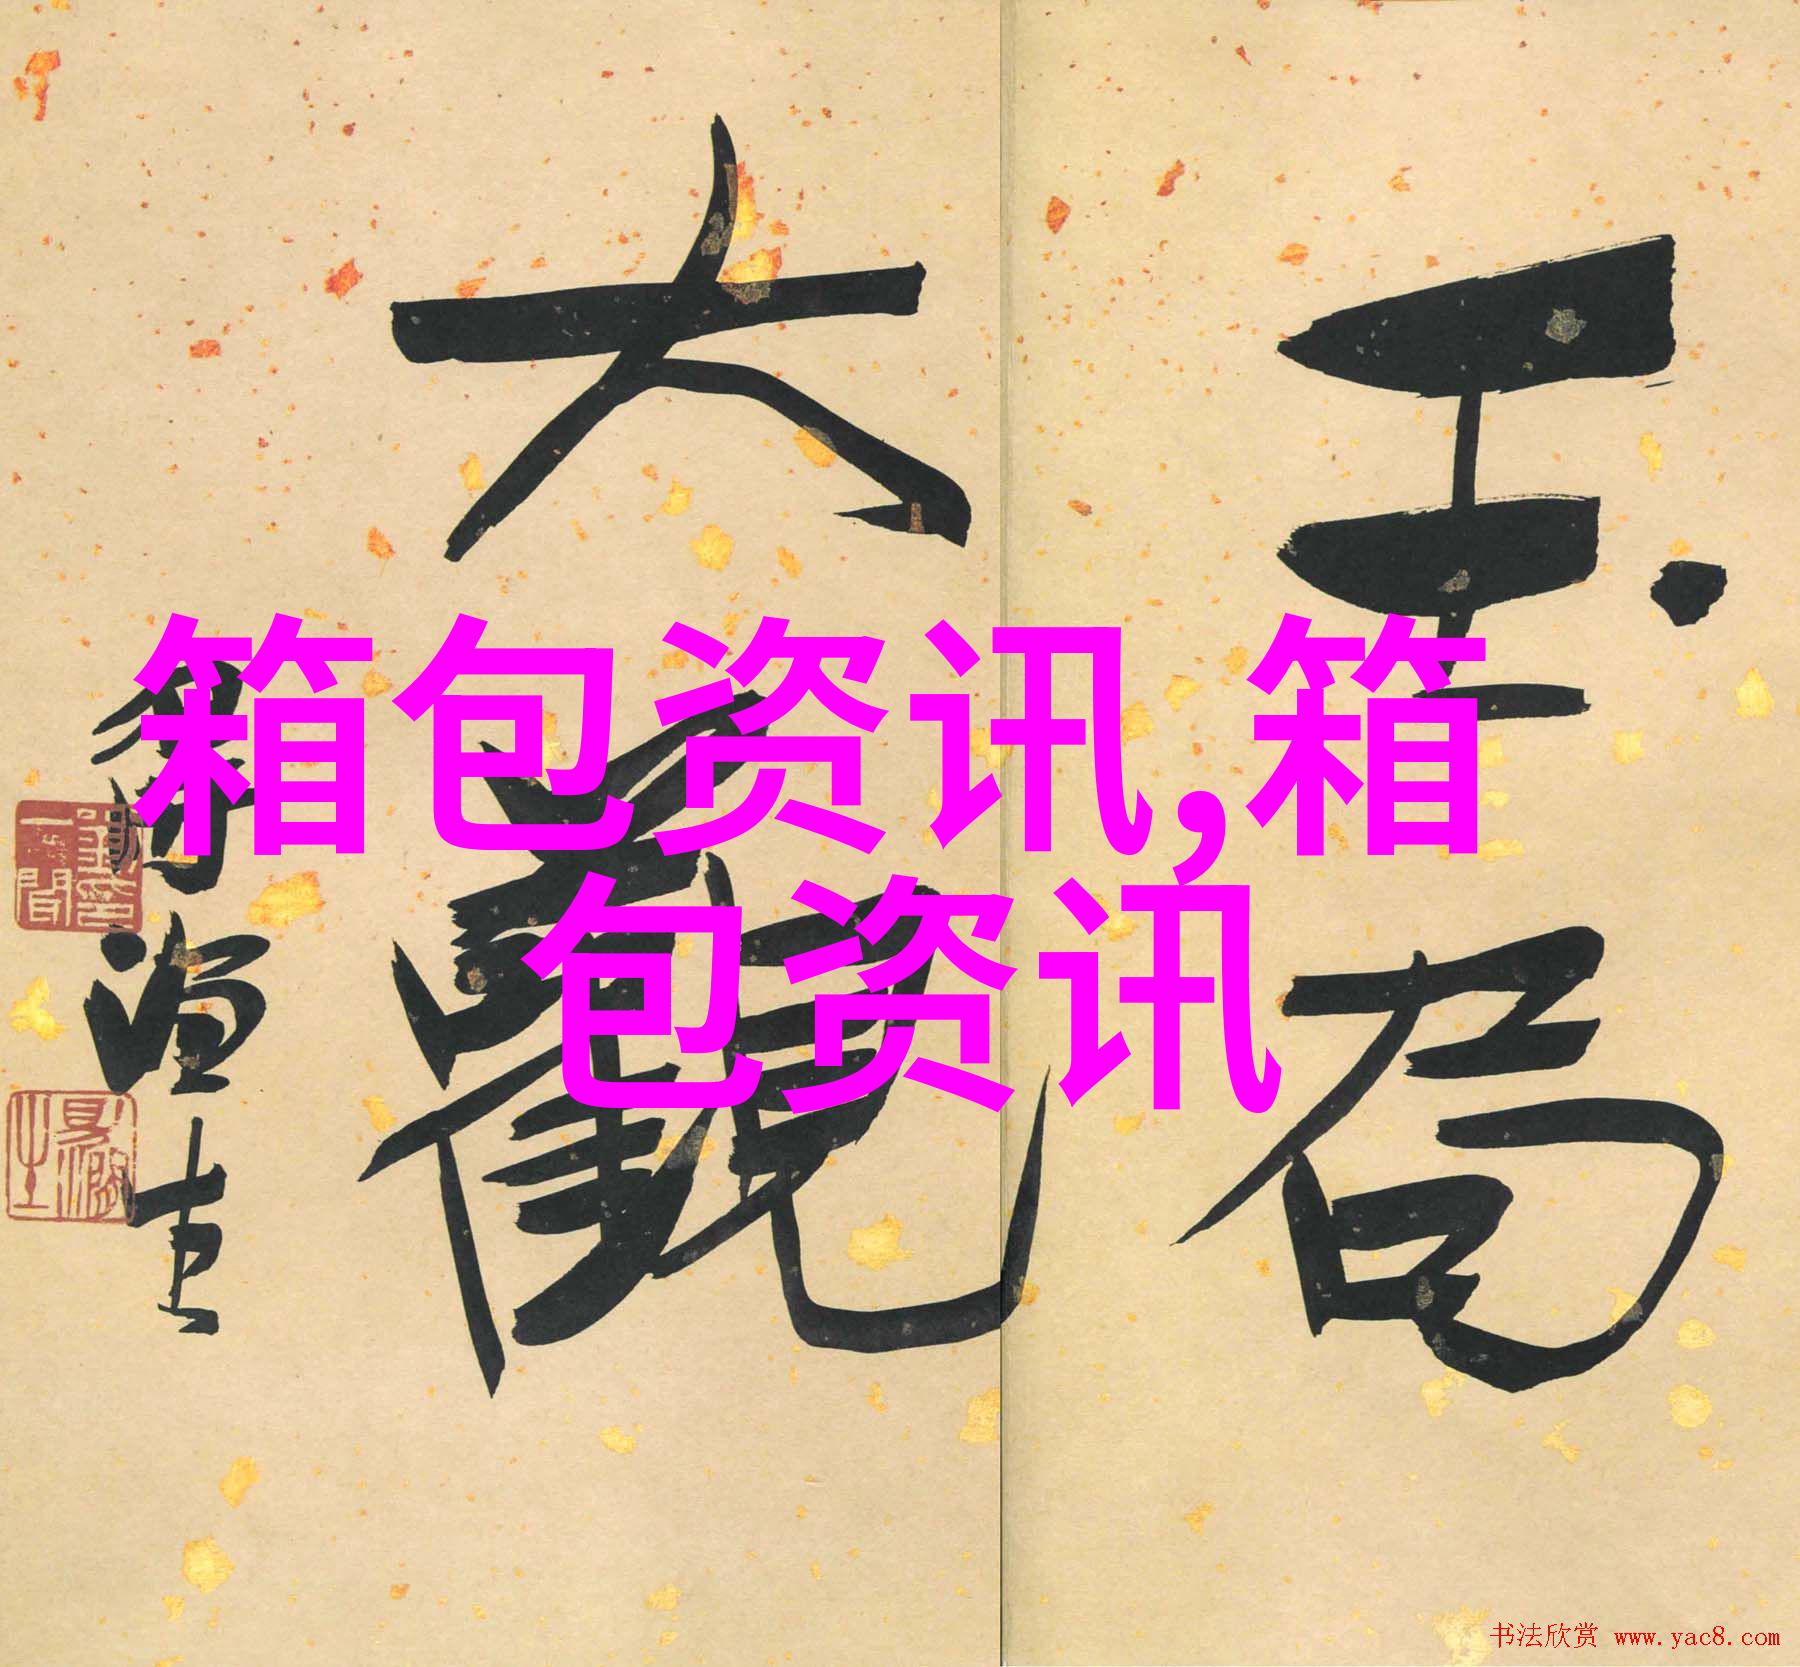 玉局
大觀
箱包资讯,箱
包资讯
书法欣赏 www.yac8.com